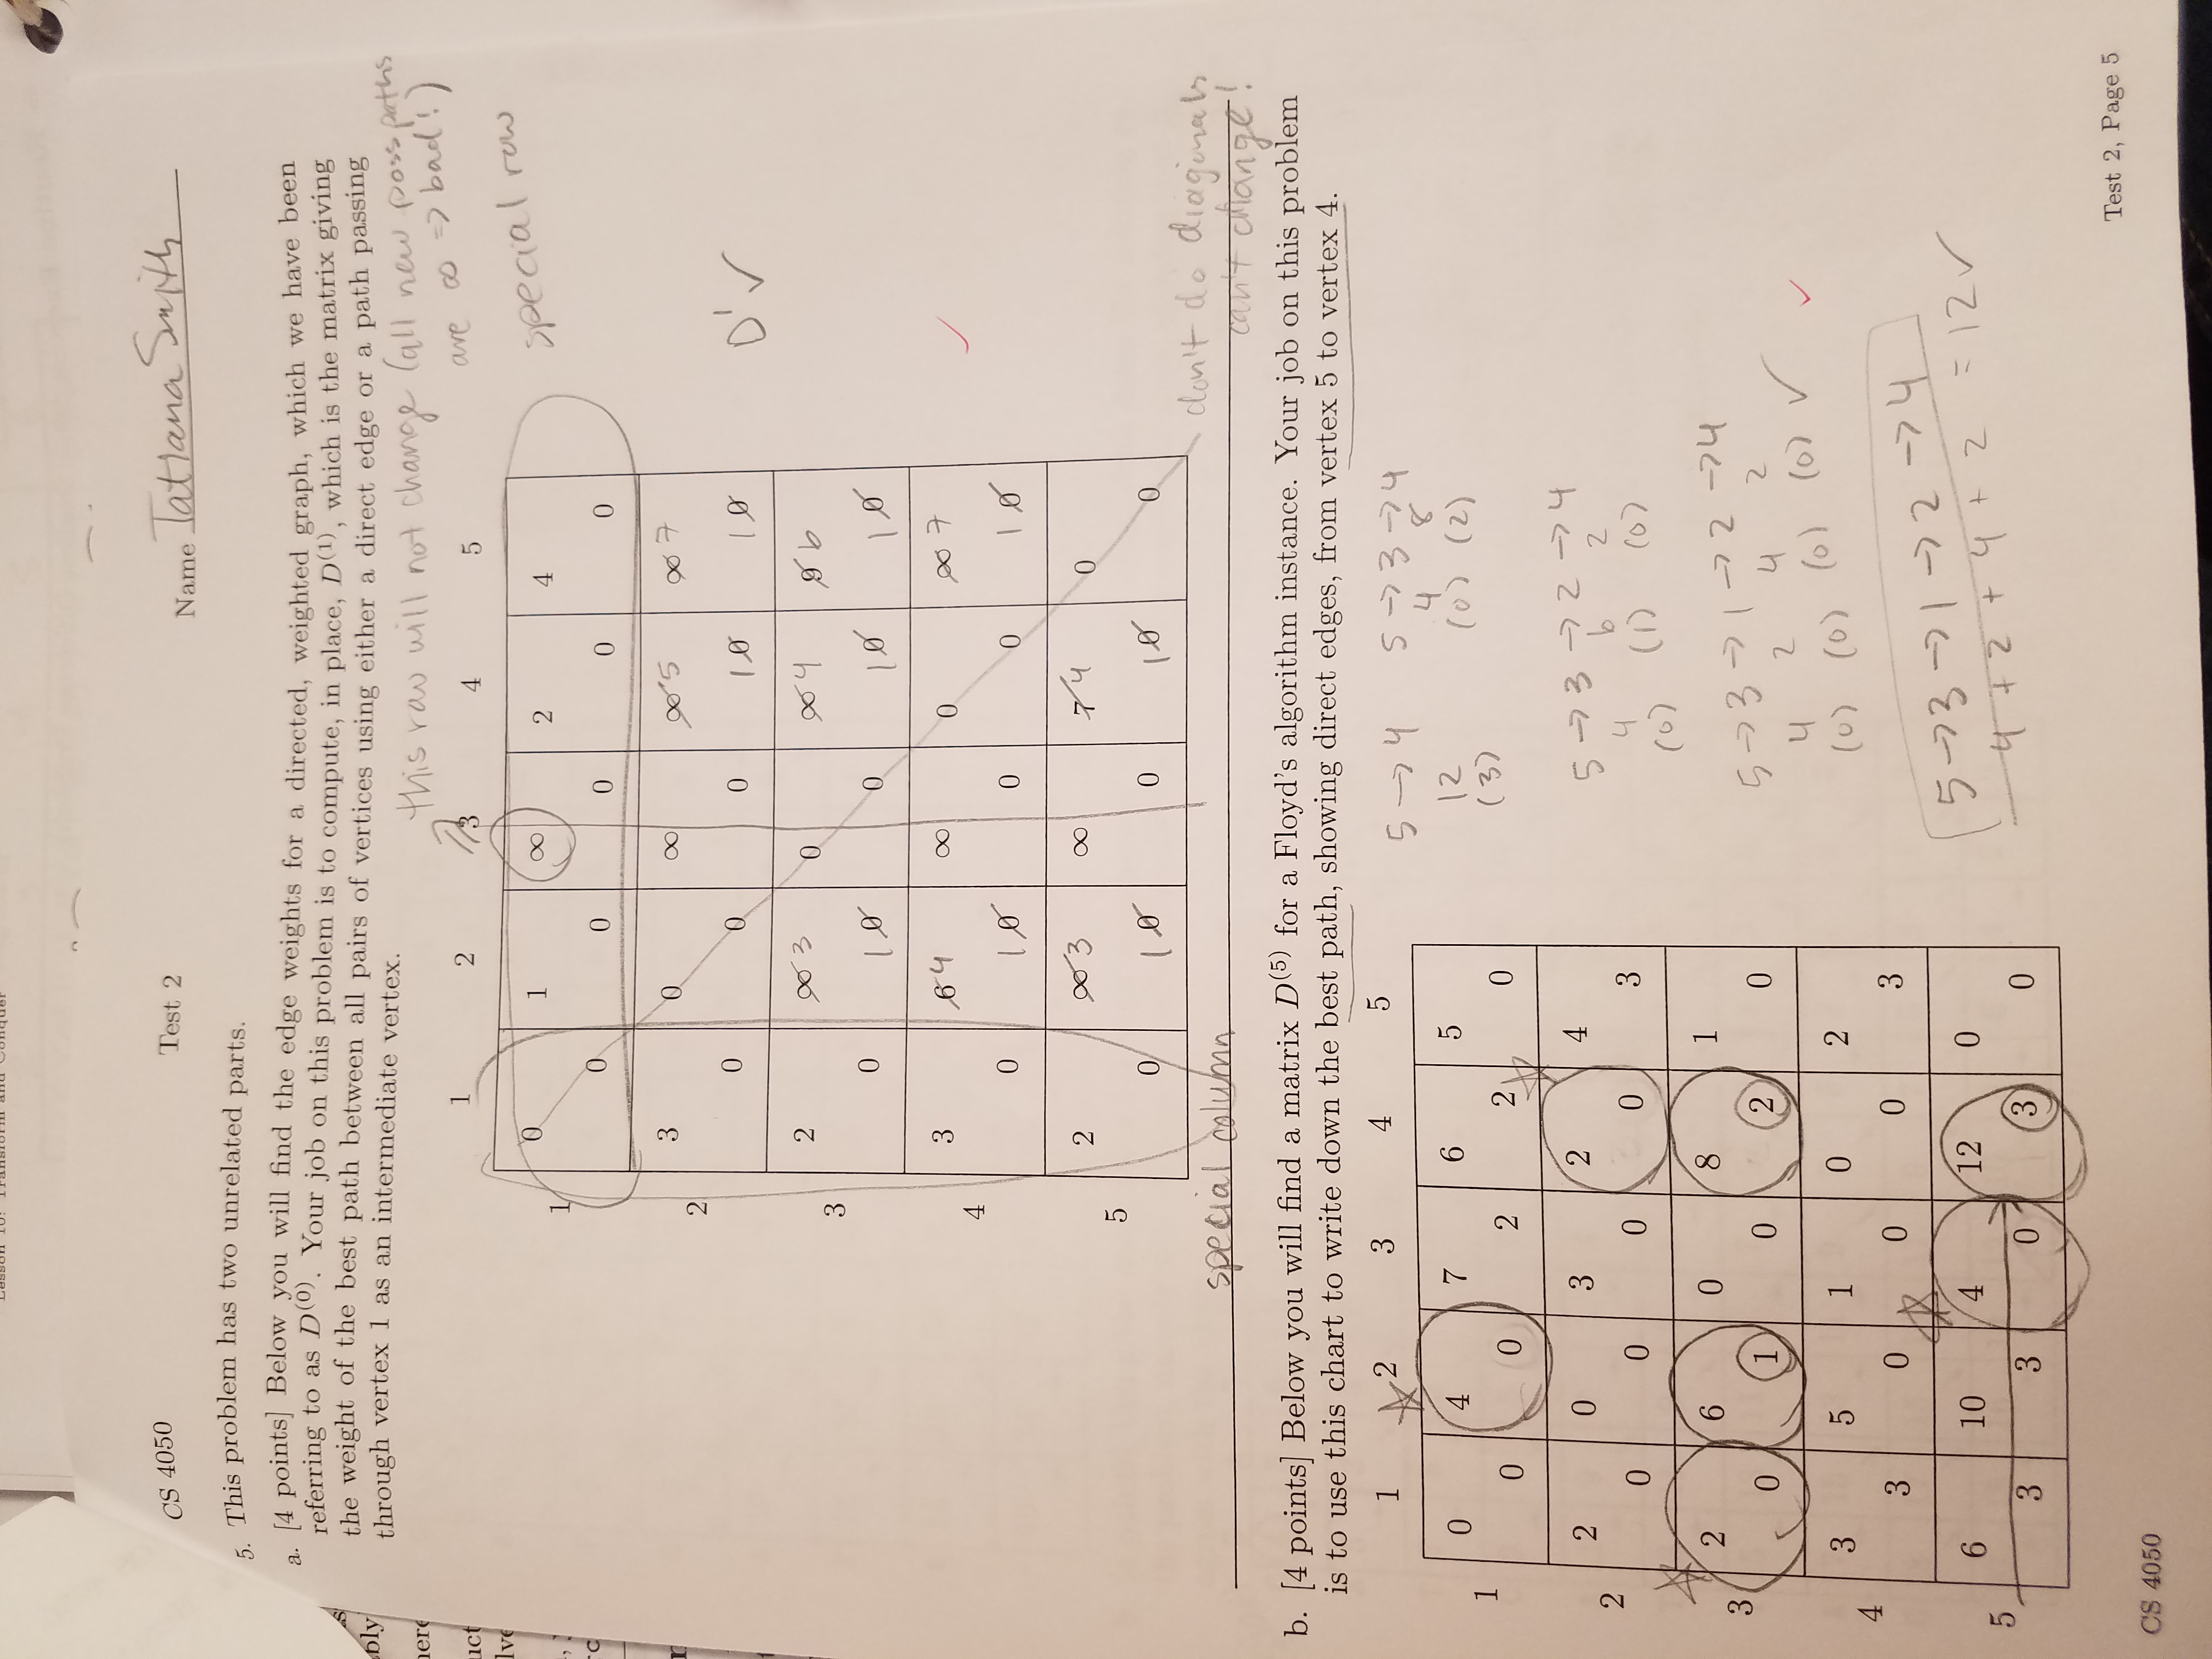 Lesson 10: Transform and Conquer
CS 4050
Test 2
Name Tatiana Smith
5. This problem has two unrelated parts.
a. [4 points] Below you will find the edge weights for a directed, weighted graph, which we have been
referring to as D⁽⁰⁾. Your job on this problem is to compute, in place, D⁽¹⁾, which is the matrix giving
the weight of the best path between all pairs of vertices using either a direct edge or a path passing
through vertex 1 as an intermediate vertex.
this row will not change (all new poss paths
are ∞ => bad!)
1 2 3 4 5
special row
1 0 1 ∞ 2 4
0 0 0 0 0
2 3 0 ∞ ∞ 5 ∞ 7
0 0 0 1 0 1 0
D' ✓
3 2 ∞ 3 0 ∞ 4 9 6
0 1 0 0 1 0 1 0
4 3 6 4 ∞ 0 ∞ 7
0 1 0 0 0 1 0
5 2 ∞ 3 ∞ 7 4 0
0 1 0 0 1 0 0
special column
don't do diaginals
can't change!
b. [4 points] Below you will find a matrix D⁽⁵⁾ for a Floyd's algorithm instance. Your job on this problem
is to use this chart to write down the best path, showing direct edges, from vertex 5 to vertex 4.
1 2 3 4 5
1 0 4 7 6 5
0 0 2 2 0
2 2 0 3 2 4
0 0 0 0 3
3 2 6 0 8 1
0 1 0 2 0
4 3 5 1 0 2
3 0 0 0 3
5 6 10 4 12 0
3 3 0 3 0
5 → 4
12
(3)
5 → 3 → 4
4 8
(0) (2)
5 → 3 → 2 → 4
4 6 2
(0) (1) (0)
5 → 3 → 1 → 2 → 4
4 2 4 2
(0) (0) (0) (0) ✓
5 → 3 → 1 → 2 → 4
4 + 2 + 4 + 2 = 12 ✓
Test 2, Page 5
CS 4050